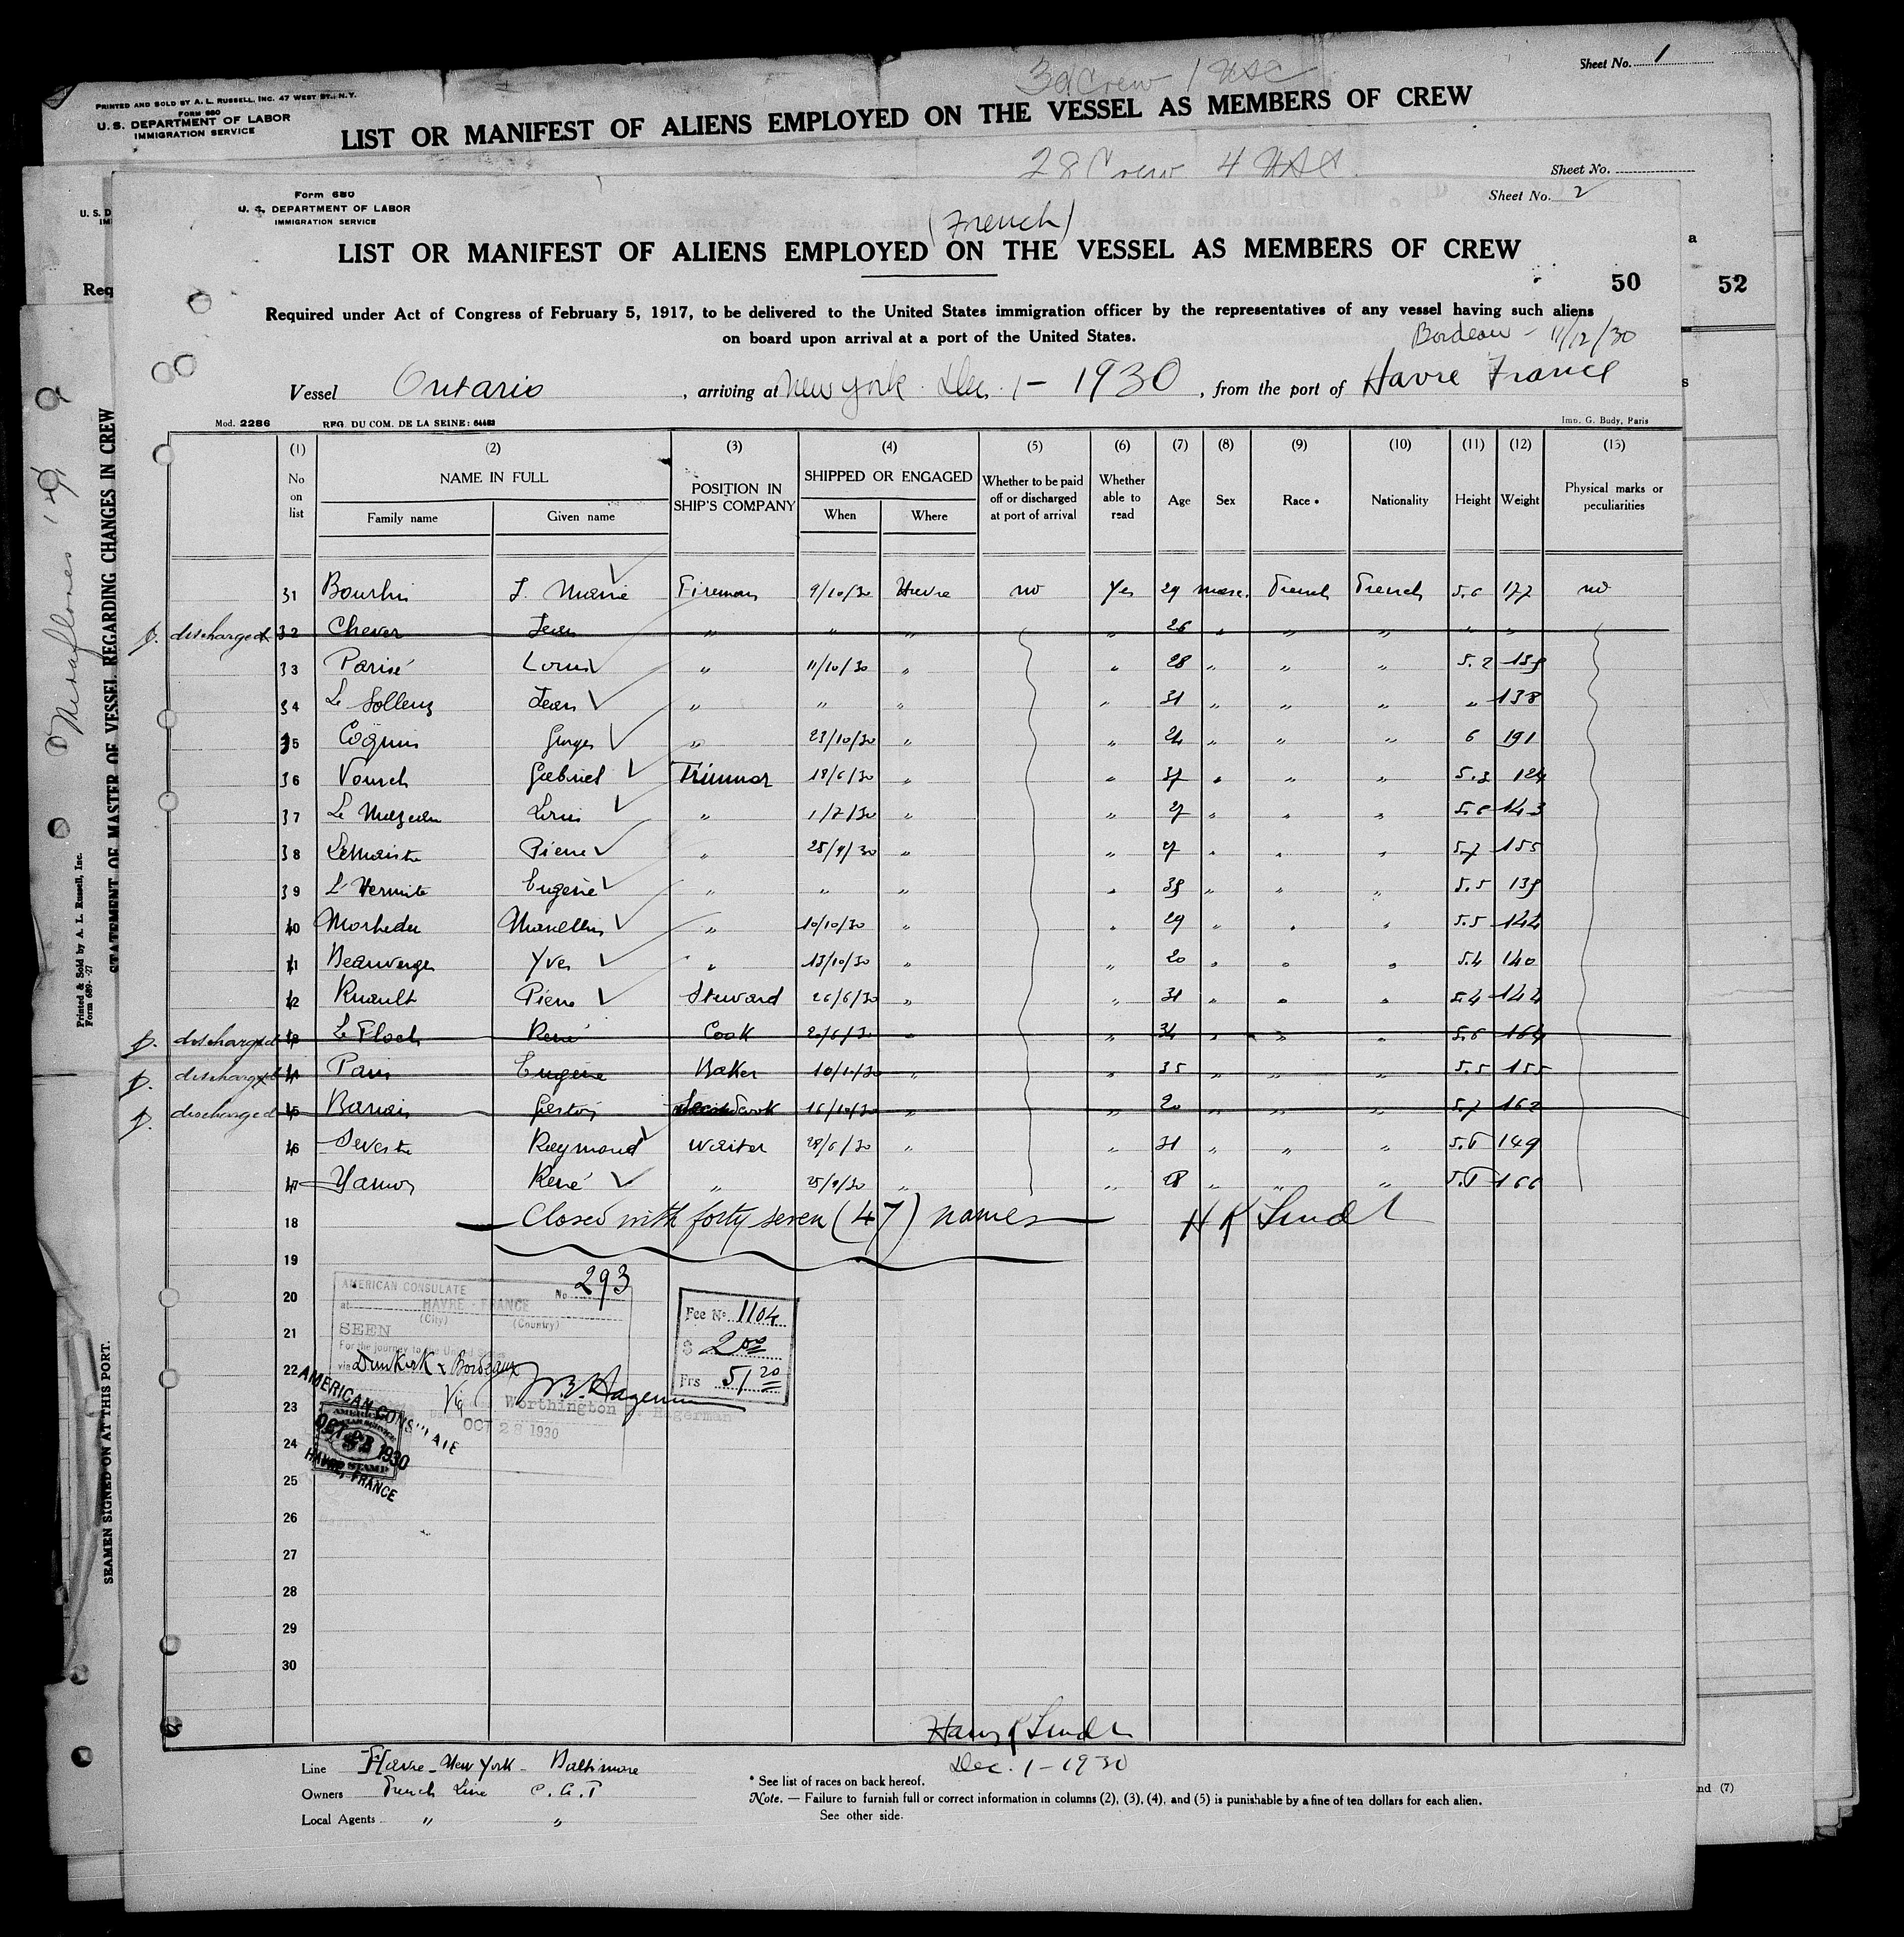 Sheet No. 1
3d Crew 1 USC
PRINTED AND SOLD BY A. L. RUSSELL, INC. 47 WEST ST., N.Y.
FORM 680
U.S. DEPARTMENT OF LABOR
IMMIGRATION SERVICE
LIST OR MANIFEST OF ALIENS EMPLOYED ON THE VESSEL AS MEMBERS OF CREW
28 Crew 4 USC
Sheet No.
Form 680
U. S. DEPARTMENT OF LABOR
IMMIGRATION SERVICE
Sheet No. 2
(French)
LIST OR MANIFEST OF ALIENS EMPLOYED ON THE VESSEL AS MEMBERS OF CREW
50 52
Required under Act of Congress of February 5, 1917, to be delivered to the United States immigration officer by the representatives of any vessel having such aliens
on board upon arrival at a port of the United States.
Bordeau - 11/12/30
Vessel Ontario, arriving at New York Dec. 1 - 1930, from the port of Havre France
Mod. 2286 REG. DU COM. DE LA SEINE: 64483 Imp. G. Budy, Paris
(1) (2) (3) (4) (5) (6) (7) (8) (9) (10) (11) (12) (13)
No on list NAME IN FULL Family name Given name POSITION IN SHIP'S COMPANY SHIPPED OR ENGAGED When Where Whether to be paid off or discharged at port of arrival Whether able to read Age Sex Race * Nationality Height Weight Physical marks or peculiarities
31 Bourhis J. Marie Fireman 9/10/30 Havre no Yes 29 masc. French French 5.6 177 no
discharged 32 Chever Jean " " " " 26 " " " " "
33 Parisé Louis " 11/10/30 " " 28 " " " 5.2 159
34 Le Jean " " " " 31 " " " " 138
35 Georges " 23/10/30 " " 24 " " " 6 191
36 Vourch Gabriel Trimmer 18/6/30 " " 37 " " " 5.3 124
37 Louis " 1/7/30 " " 27 " " " 5.6 143
38 Lemaistre Pierre " 25/9/30 " " 27 " " " 5.7 155
39 L'Hermite Eugène " " " " 39 " " " 5.5 139
40 Marcellin " 10/10/30 " " 29 " " " 5.5 144
41 Beauverger Yves " 13/10/30 " " 20 " " " 5.4 140
42 Ruault Pierre Steward 26/6/30 " " 31 " " " 5.4 144
discharged 43 Le Floch René Cook 20/6/30 " " 34 " " " 5.6 164
discharged 44 Paris Eugène Baker 10/1/30 " " 35 " " " 5.5 155
discharged 45 Gaston Second cook 16/10/30 " " 20 " " " 5.7 162
46 Sevestre Raymond Waiter 28/6/30 " " 31 " " " 149
47 René " 25/9/30 " " 28 " " " 166
18 Closed with forty seven (47) names H K Lindt
19
20
21
22
23
24
25
26
27
28
29
30
AMERICAN CONSULATE No. 293
at HAVRE - FRANCE
(City) (Country)
SEEN
For the journey to the United States
via Dunkirk & Bordeaux
Worthington E. Hagerman
OCT 28 1930
Fee No. 1104
$ 2.00
Frs 51.20
AMERICAN CONSULATE
OCT 28 1930
HAVRE, FRANCE
Dec. 1 - 1930
Line Havre - New York - Baltimore
Owners French Line C. G. T
Local Agents " "
* See list of races on back hereof.
Note. — Failure to furnish full or correct information in columns (2), (3), (4), and (5) is punishable by a fine of ten dollars for each alien.
See other side.
nd (7)
STATEMENT OF MASTER OF VESSEL REGARDING CHANGES IN CREW
Printed & Sold by A. L. Russell, Inc.
Form 689-27
SEAMEN SIGNED ON AT THIS PORT.
U. S. D
Req